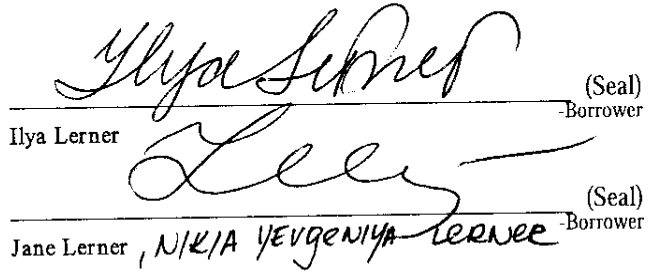 Ilya Lerner
(Seal)
-Borrower
Ilya Lerner
(Seal)
-Borrower
Jane Lerner , N/K/A YEVGENIYA LERNER